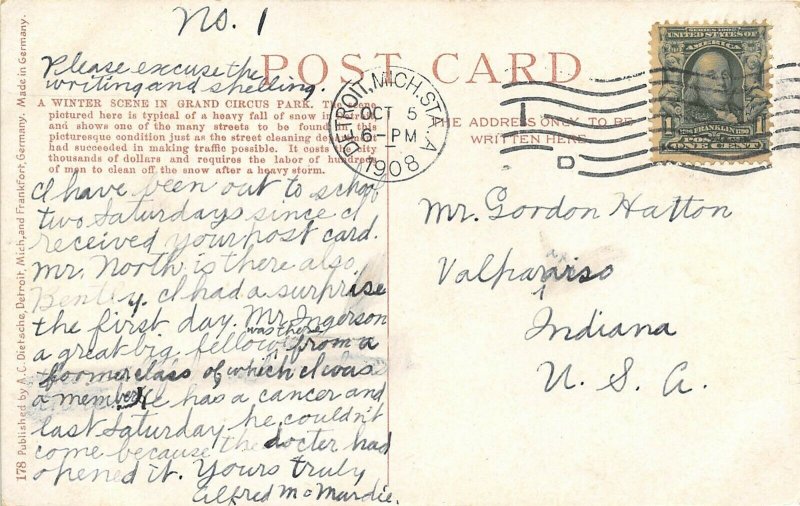 No. 1
Please excuse the
writing and spelling.
POST CARD
A WINTER SCENE IN GRAND CIRCUS PARK. The scene
pictured here is typical of a heavy fall of snow in
and shows one of the many streets to be found in this
picturesque condition just as the street cleaning
had succeeded in making traffic possible. It costs the city
thousands of dollars and requires the labor of hundreds
of men to clean off the snow after a heavy storm.
THE ADDRESS ONLY TO BE
WRITTEN HERE
DETROIT, MICH. STA. A
OCT 5
6-PM
1908
D
SERIES 1902
UNITED STATES OF
AMERICA
FRANKLIN
1 1
ONE CENT
I have been out to school
two Saturdays since I
received your post card.
Mr. North is there also
Bently. I had a surprise
the first day. Mr. Ingerson
a great big fellow was there from a
former class of which I was
a member. He has a cancer and
last Saturday he couldn't
come because the docter had
opened it. Yours truly
Alfred McMardie.
Mr. Gordon Hatton
Valparaiso
Indiana
U. S. A.
178 Published by A. C. Dietsche, Detroit, Mich., and Frankfort, Germany. Made in Germany.